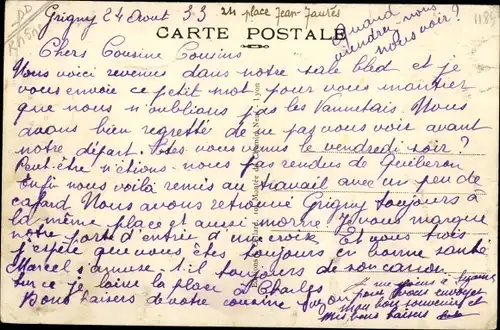 Grigny 24 Aout 33 24 place Jean-Jaurès
Quand
viendrez-vous
nous voir?
CARTE POSTALE
Chers Cousine Cousins
Nous voici revenus dans notre sale bled et je
vous envoie ce petit mot pour vous montrer
que nous n'oublions pas les Vannetais. Nous
avons bien regretté de ne pas vous voir avant
notre départ. Etes-vous venus le vendredi soir?
Peut-être n'étions-nous pas rendus de Quiberon
Enfin nous voilà remis au travail avec un peu de
cafard. Nous avons retrouvé Grigny toujours à
la même place et aussi morne. Je vous marque
notre porte d'entrée d'une croix. Et vous trois
j'espère que vous êtes toujours en bonne santé
Marcel s'amuse t'il toujours de son canon.
Sur ce je laisse la place à Charles
Bons baisers de votre cousine
Je me joins à
pour vous envoyer
mon bon souvenir et
mes bons baisers